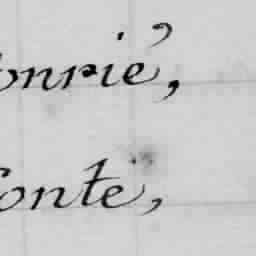 onrie,
conte,